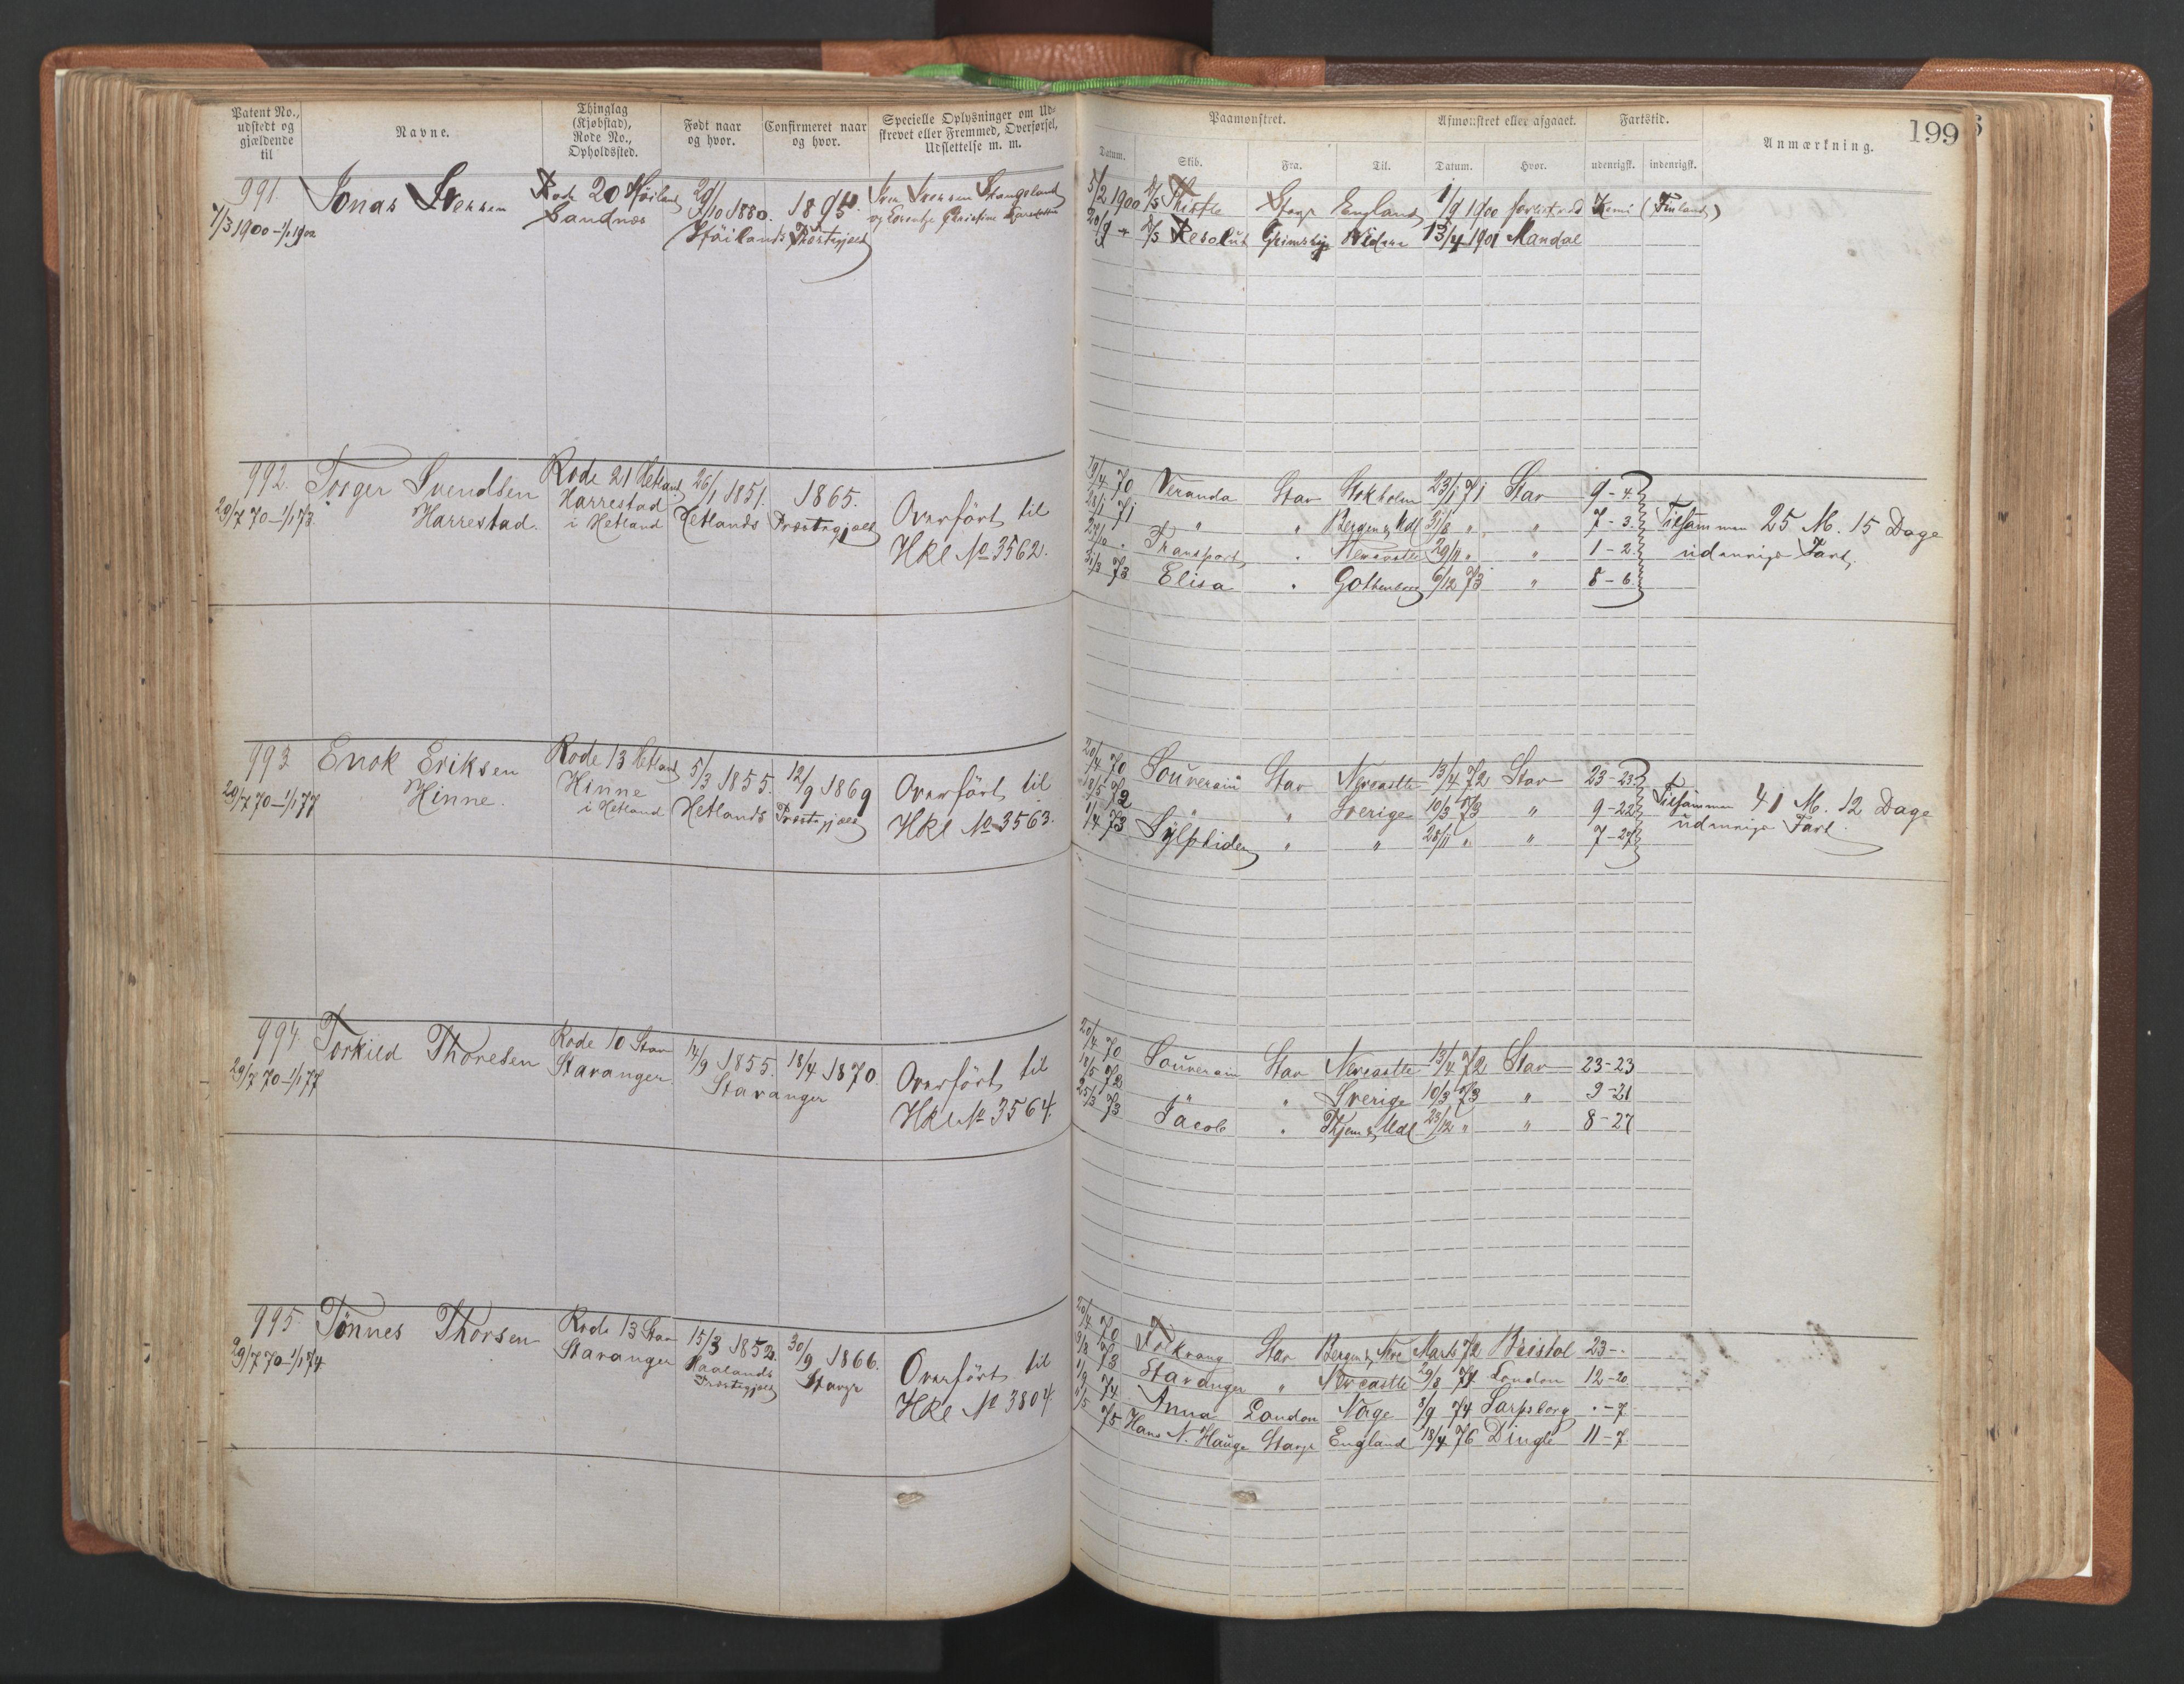 Patent No., udstedt og gjældende til
Navne.
Thinglag (Kjøbstad), Rode No., Opholdssted.
Født naar og hvor.
Confirmeret naar og hvor.
Specielle Oplysninger om Udskrevet eller Fremmed, Overførsel, Udslettelse m. m.
Paamønstret.
Afmønstret eller afgaaet.
Fartstid.
Anmærkning.
199
Datum. Skib. Fra. Til. Datum. Hvor. udenrigsk. indenrigsk.
991. Jonas Rode 20 Høiland 1880. 1895
7/3 1900 - 1/1 1902 Sandnæs Høilands Præstegjæld
5/2 1900 Stavgr England 1/9 1900 Kemi (Finland)
20/9 Resolut Grimsby 13/4 1901 Mandal
992. Torger Svendsen Rode 21 Hetland 26/1 1851. 1865. Overført til
29/7 70 - 1/1 73. Harrestad. Harrestad i Hetland Hetlands Præstegjæld Hkl No 3562.
19/4 70 Veranda Stav Stokholm 23/1 71 Stav 9 - 4
23/1 71 " " Bergen & Mdl 31/8 " " 7 - 3. Tilsammen 25 M. 15 Dage
Transport " Newcastle 29/11 " " 1 - 2. udenrigs Fart.
31/3 73 Elisa " Gothenborg 6/12 73 " 8 - 6.
993 Enok Eriksen Rode 13 Hetland 5/3 1855. 12/9 1869 Overført til
29/7 70 - 1/1 77 Hinne. Hinne i Hetland Hetlands Præstegjæld Hkl No 3563.
20/4 70 Souverain Stav Newcastle 13/4 72 Stav 23 - 23
18/5 72 " " Sverige 10/3 73 " 9 - 22 Tilsammen 41 M. 12 Dage
1/4 73 Sylphiden " " 28/11 " " 7 - 27 udenrigs Fart.
994 Torkild Thoresen Rode 10 Stav 14/9 1855. 18/4 1870. Overført til
29/7 70 - 1/1 77 Stavanger. Stavanger Hkl No 3564.
20/4 70 Souverain Stav Newcastle 13/4 72 Stav 23 - 23
18/5 72 " " Sverige 10/3 73 " 9 - 21
25/3 73 Jacob " Thjem & Mdl 23/12 " " 8 - 27
995 Tönnes Thorsen Rode 13 Stav 15/3 1852. 30/9 1866. Overført til
29/7 70 - 1/1 74 Stavanger Haalands Præstegjæld Stavgr Hkl No 3804.
20/4 70 Folkvang Stav Bergen & Marts 72 Bristol 23 - .
73 Stavanger " Newcastle 29/8 74 London 12 - 20
1/9 74 Anna London Norge 8/9 74 Sarpsborg . - 7
75 Hans N. Hauge Stavgr England 18/4 76 Dingle 11 - 7